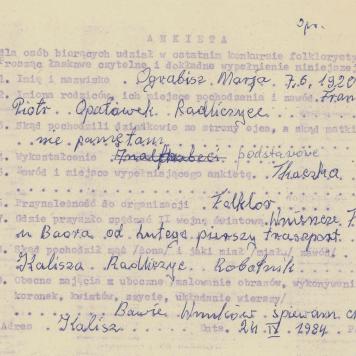 Spr.
ANKIETA
dla osób biorących udział w ostatnim konkursie folklorysty
Proszę łaskawe czytelne i dokładne wypełnienie niniejszej
1. Imię i nazwisko Ograbisz Marja 7.6.1920
2. Imiona rodziców, ich miejsce pochodzenia i zawód Fran
Piotr Opatówek Radliczyce
3. Skąd pochodzili dziadkowie ze strony ojca, a skąd matki
nie pamiętam
4. Wykształcenie podstawowe
5. Zawód i miejsce wypełniającego ankietę. Tkaczka
6. Przynależność do organizacji Folklor
7. Gdzie przyszło spędzać II wojnę światową
u Baora od lutego pierszy transport
8. Skąd pochodził mąż /żona/ i jaki miał /miała/ zawód
Kalisza Radliczyc Robotnik
9. Obecne zajęcia z uboczne /malowanie obrazów, wykonywani
koronek, kwiatów, szycie, układnie wierszy/
Bawie Wnuków śpiewam
Adres Kalisz Data. 24 IV 1984